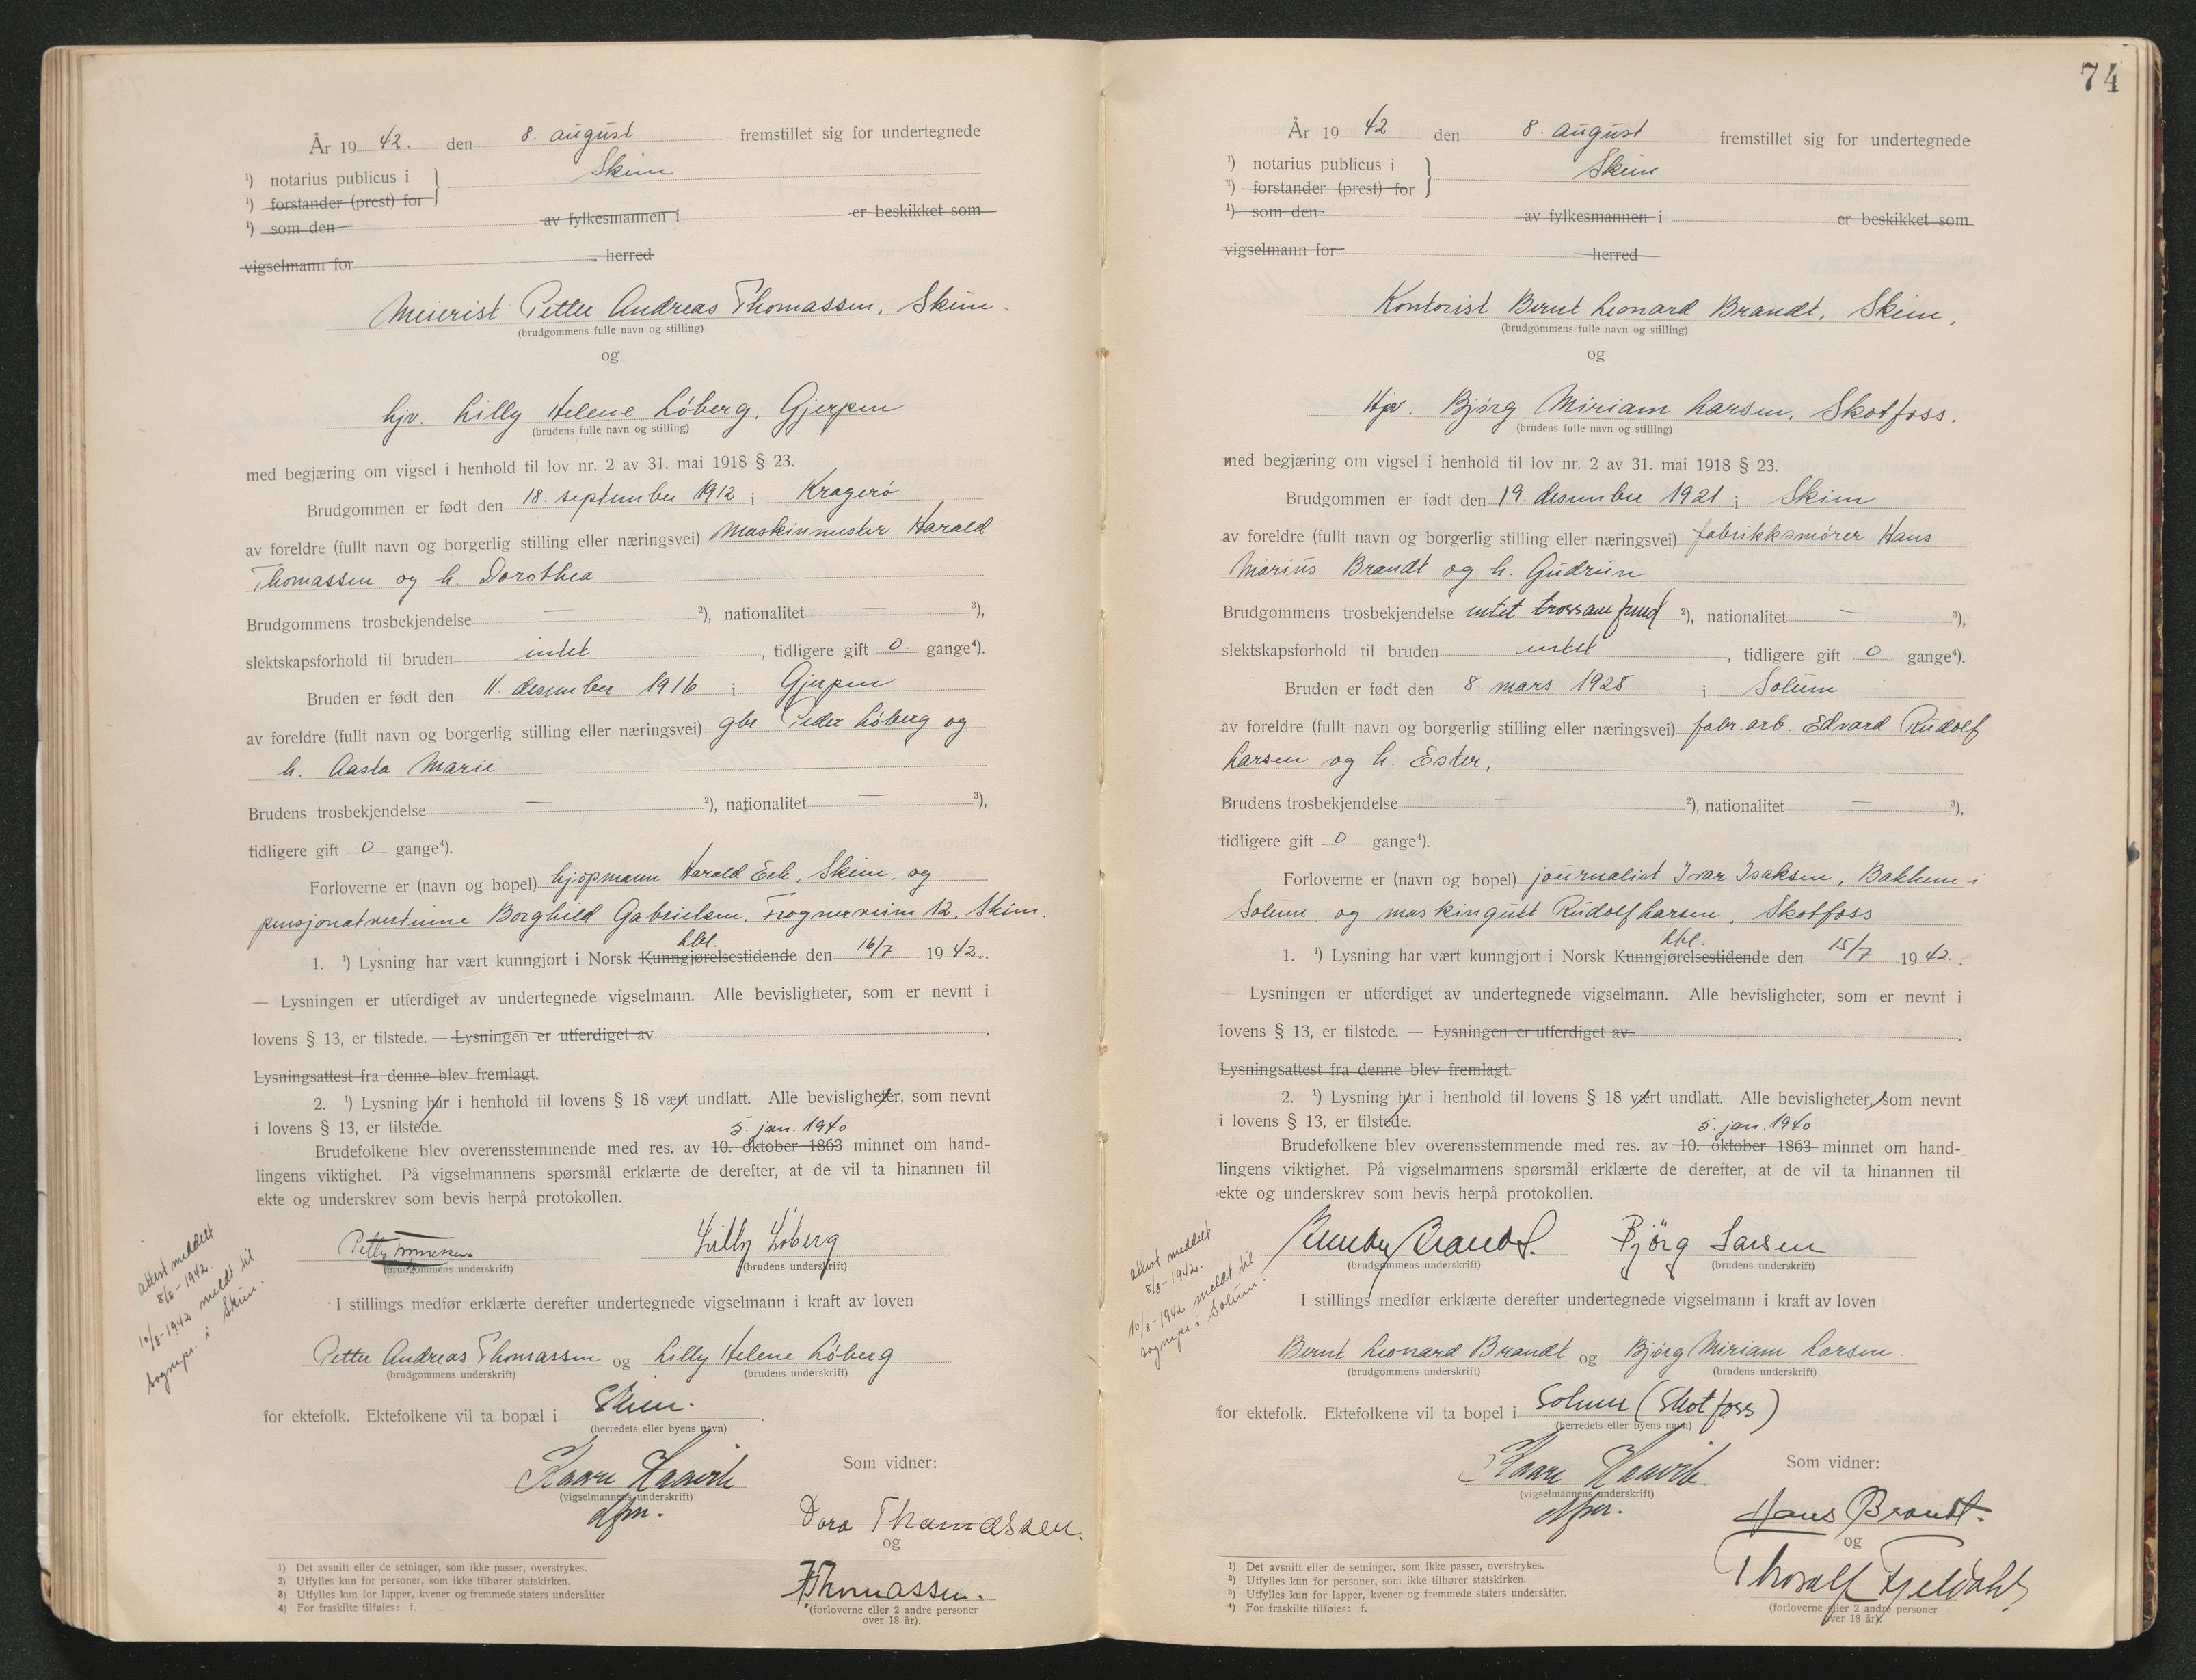 År 19 42. den 8. august fremstillet sig for undertegnede
¹) notarius publicus i } Skien
¹) forstander (prest) for
¹) som den av fylkesmannen i er beskikket som
vigselmann for herred
Meierist Petter Andreas Thomassen, Skien.
(brudgommens fulle navn og stilling)
og
hjv. Lilly Helene Löberg, Gjerpen
(brudens fulle navn og stilling)
med begjæring om vigsel i henhold til lov nr. 2 av 31. mai 1918 § 23.
Brudgommen er født den 18. september 1912 i Kragerö
av foreldre (fullt navn og borgerlig stilling eller næringsvei) Maskinmester Harald
Thomassen og h. Dorothea
Brudgommens trosbekjendelse — ²), nationalitet — ³),
slektskapsforhold til bruden intet, tidligere gift 0 gange⁴).
Bruden er født den 11. desember 1916 i Gjerpen
av foreldre (fullt navn og borgerlig stilling eller næringsvei) gbr. Peder Löberg og
h. Aasta Marie
Brudens trosbekjendelse — ²), nationalitet — ³),
tidligere gift 0 gange⁴).
Forloverne er (navn og bopel) kjöpmann Harald Eek, Skien, og
pensjonatvertinne Borghild Gabrielsen, Frognerveien 12, Skien.
hbl.
1. ¹) Lysning har vært kunngjort i Norsk Kunngjørelsestidende den 16/7 19 42.
— Lysningen er utferdiget av undertegnede vigselmann. Alle bevisligheter, som er nevnt i
lovens § 13, er tilstede. — Lysningen er utferdiget av
Lysningsattest fra denne blev fremlagt.
2. ¹) Lysning har i henhold til lovens § 18 vært undlatt. Alle bevisligheter, som nevnt
i lovens § 13, er tilstede.
5. jan. 1940
Brudefolkene blev overensstemmende med res. av 10. oktober 1863 minnet om hand-
lingens viktighet. På vigselmannens spørsmål erklærte de derefter, at de vil ta hinannen til
ekte og underskrev som bevis herpå protokollen.
Lilly Löberg
(brudgommens underskrift) (brudens underskrift)
attest meddelt
8/8-1942.
10/8-1942 meldt til
sognepr. i Skien.
I stillings medfør erklærte derefter undertegnede vigselmann i kraft av loven
Petter Andreas Thomassen og Lilly Helene Löberg
(brudgommens underskrift) (brudens underskrift)
for ektefolk. Ektefolkene vil ta bopæl i Skien.
(herredets eller byens navn)
Kaare Haavik
(vigselmannens underskrift)
Som vidner:
Dora Thomassen.
og
HThomassen.
(forloverne eller 2 andre personer
over 18 år).
1) Det avsnitt eller de setninger, som ikke passer, overstrykes.
2) Utfylles kun for personer, som ikke tilhører statskirken.
3) Utfylles kun for lapper, kvener og fremmede staters undersåtter
4) For fraskilte tilføies: f.
74
År 19 42 den 8. august fremstillet sig for undertegnede
¹) notarius publicus i } Skien
¹) forstander (prest) for
¹) som den av fylkesmannen i er beskikket som
vigselmann for herred
Kontorist Bernt Leonard Brandt, Skien,
(brudgommens fulle navn og stilling)
og
Hjv. Bjørg Miriam Larsen, Skotfoss.
(brudens fulle navn og stilling)
med begjæring om vigsel i henhold til lov nr. 2 av 31. mai 1918 § 23.
Brudgommen er født den 19. desember 1921 i Skien
av foreldre (fullt navn og borgerlig stilling eller næringsvei) fabrikksmører Hans
Marius Brandt og h. Gudrun
Brudgommens trosbekjendelse intet trossamfund ²), nationalitet — ³),
slektskapsforhold til bruden intet, tidligere gift 0 gange⁴).
Bruden er født den 8. mars 1925 i Solum
av foreldre (fullt navn og borgerlig stilling eller næringsvei) fabr.arb. Edvard Rudolf
Larsen og h. Ester,
Brudens trosbekjendelse — ²), nationalitet — ³),
tidligere gift 0 gange⁴).
Forloverne er (navn og bopel) journalist Ivar Isaksen, Bakken i
Solum, og maskingutt Rudolf Larsen, Skotfoss
hbl.
1. ¹) Lysning har vært kunngjort i Norsk Kunngjørelsestidende den 15/7 19 42.
— Lysningen er utferdiget av undertegnede vigselmann. Alle bevisligheter, som er nevnt i
lovens § 13, er tilstede. — Lysningen er utferdiget av
Lysningsattest fra denne blev fremlagt.
2. ¹) Lysning har i henhold til lovens § 18 vært undlatt. Alle bevisligheter, som nevnt
i lovens § 13, er tilstede.
5. jan. 1940
Brudefolkene blev overensstemmende med res. av 10. oktober 1863 minnet om hand-
lingens viktighet. På vigselmannens spørsmål erklærte de derefter, at de vil ta hinannen til
ekte og underskrev som bevis herpå protokollen.
Brandt. Björg Larsen
(brudgommens underskrift) (brudens underskrift)
attest meddelt
8/8-1942.
10/8-1942 meldt til
sognepr. i Solum.
I stillings medfør erklærte derefter undertegnede vigselmann i kraft av loven
Bernt Leonard Brandt og Bjørg Miriam Larsen.
(brudgommens underskrift) (brudens underskrift)
for ektefolk. Ektefolkene vil ta bopel i Solum (Skotfoss)
(herredets eller byens navn)
Kaare Haavik
(vigselmannens underskrift)
Som vidner:
Hans Brandt.
og
Thoralf Fjeldahl
(forloverne eller 2 andre personer
over 18 år).
1) Det avsnitt eller de setninger, som ikke passer, overstrykes.
2) Utfylles kun for personer, som ikke tilhører statskirken.
3) Utfylles kun for lapper, kvener og fremmede staters undersåtter.
4) For fraskilte tilføies: f.